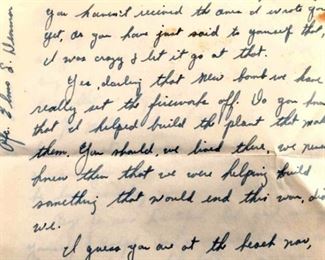 you haven't received the ones I wrote you
yet, or you have just said to yourself that
I was crazy & let it go at that.
Yes, darling that new bomb we have
really set the fireworks off. Do you know
that I'd helped build the plant that made
them. You should, we lived there, we never
knew then that we were helping build
something that would end this war, did
we.
I guess you are at the beach now,
Pfc. Elmo E.